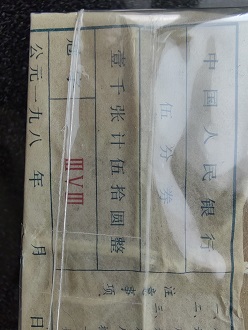 中国人民银行
伍分券
壹千张计伍拾圆整
冠字 ⅢⅤⅢ
公元一九八 年 月 日
注意事项
一、
二、